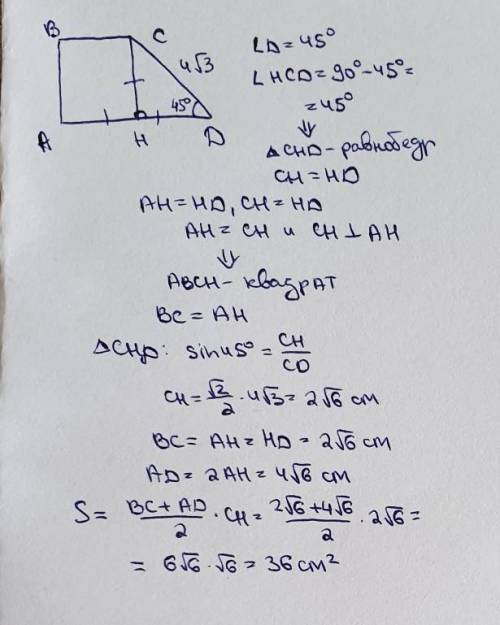 B
C
4√3
45°
A
H
D
∠D = 45°
∠HCD = 90° - 45° =
= 45°
⇓
△CHD - равнобедр
CH = HD
AH = HD, CH = HD
AH = CH и CH ⊥ AH
⇓
ABCH - квадрат
BC = AH
△CHD: sin45° = CH/CD
CH = √2/2 · 4√3 = 2√6 см
BC = AH = HD = 2√6 см
AD = 2AH = 4√6 см
S = (BC + AD)/2 · CH = (2√6 + 4√6)/2 · 2√6 =
= 6√6 · √6 = 36 см²